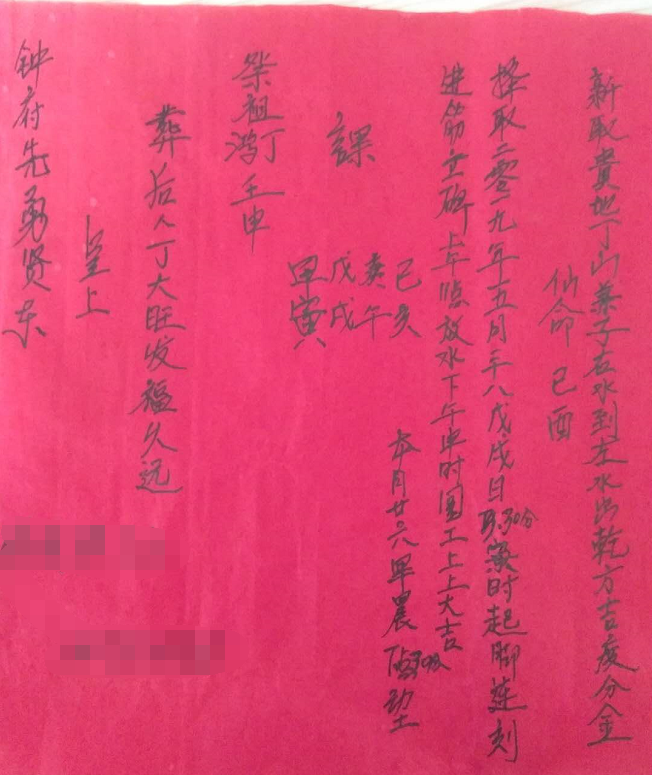 新取貴地丁山兼子右水到左水出乾方吉度分金
仙命己酉
择取二零一九年五月二十八戊戌日3点30分寅时起脚连刻
进筋立碑上午巳放水下午申时圆工上上大吉
本月廿六早晨动土
己亥
庚午
戊戌
甲寅
課
祭祖鸿丁壬申
葬后人丁大旺发福久远
呈上
钟府先勇贤东